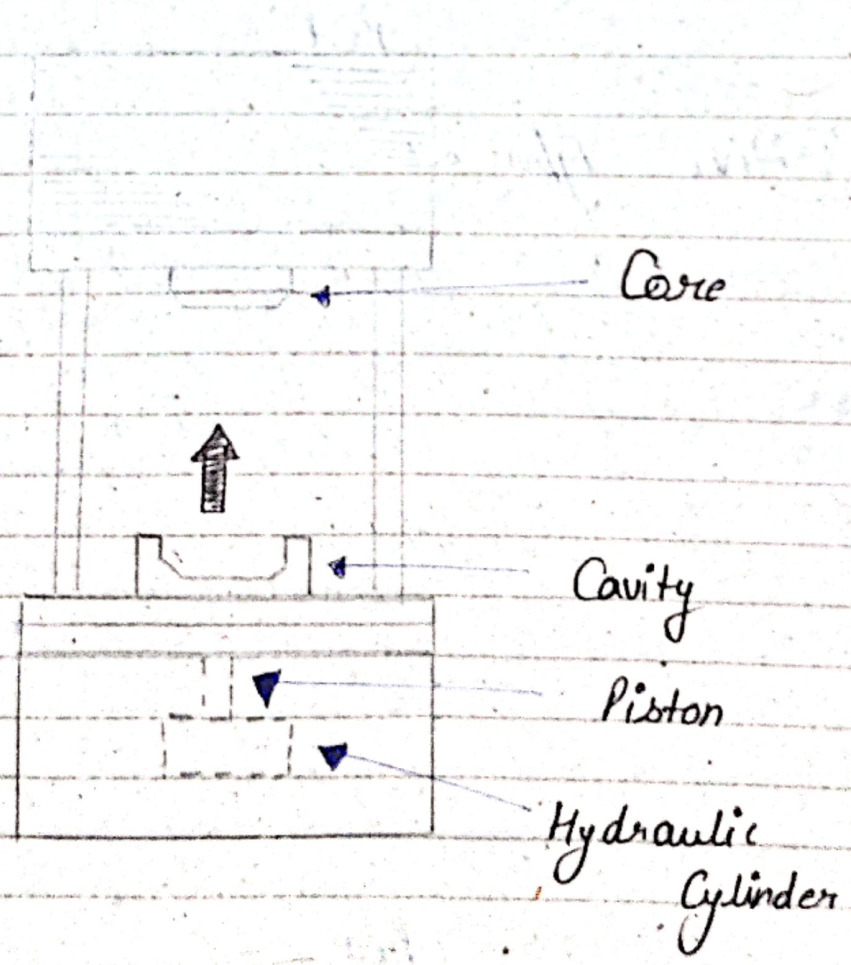 Core
Cavity
Piston
Hydraulic
Cylinder